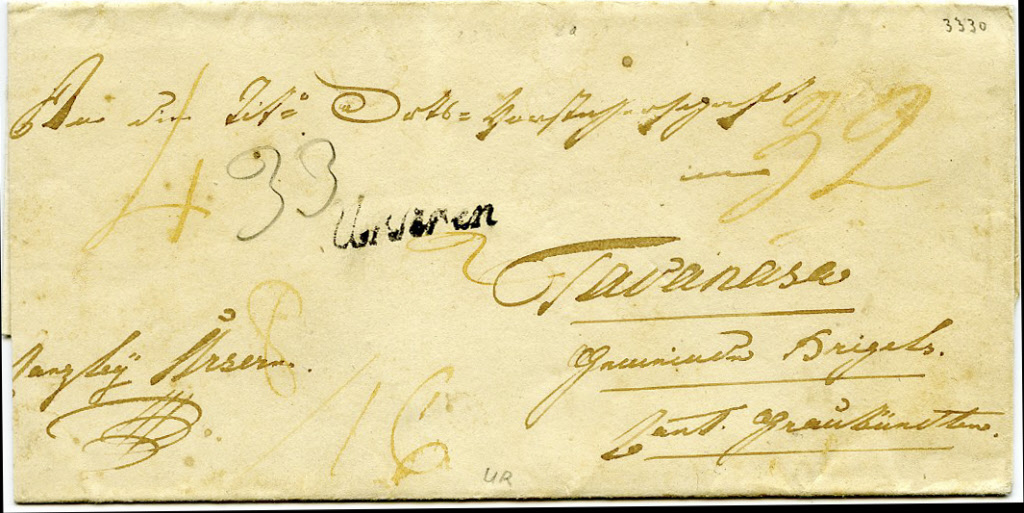 3330
An die Titº Orts= Vorsteherschaft
in
32
4
33
Urseren
Tavanasa
Gemeinde Brigels.
Kanzley Ursern.
8
16
Cant. Graubündten.
UR